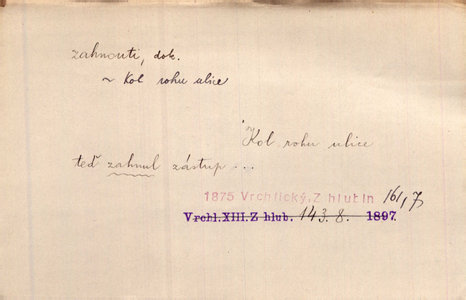 zahnouti, dok.
~ Kol rohu ulice
Kol rohu ulice
teď zahnul zástup...
1875 Vrchlický, Z hlubin 161,7
Vrchl. XIII. Z hlub. 143. 8. 1897